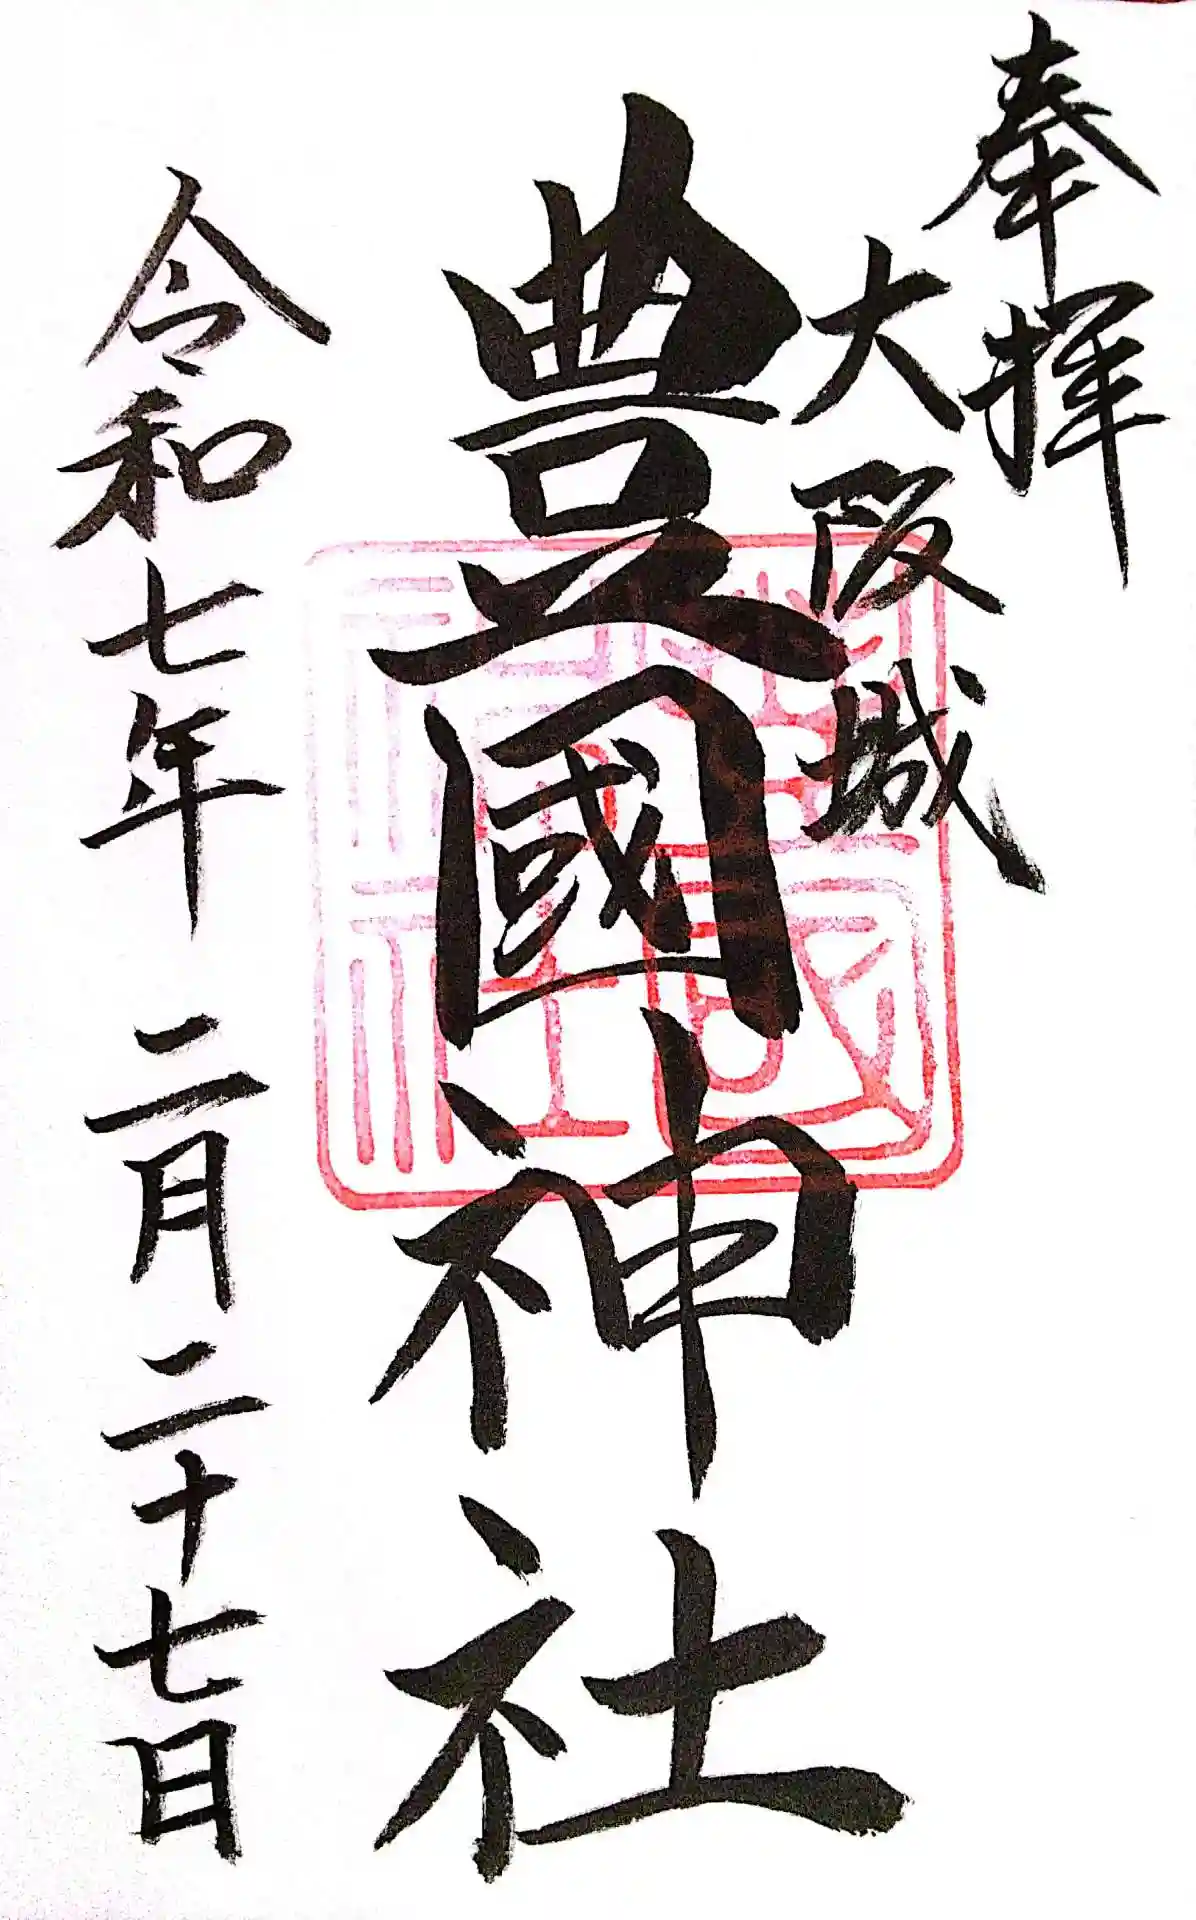 奉拝
大阪城
豊國神社
令和七年二月二十七日
豊國神社